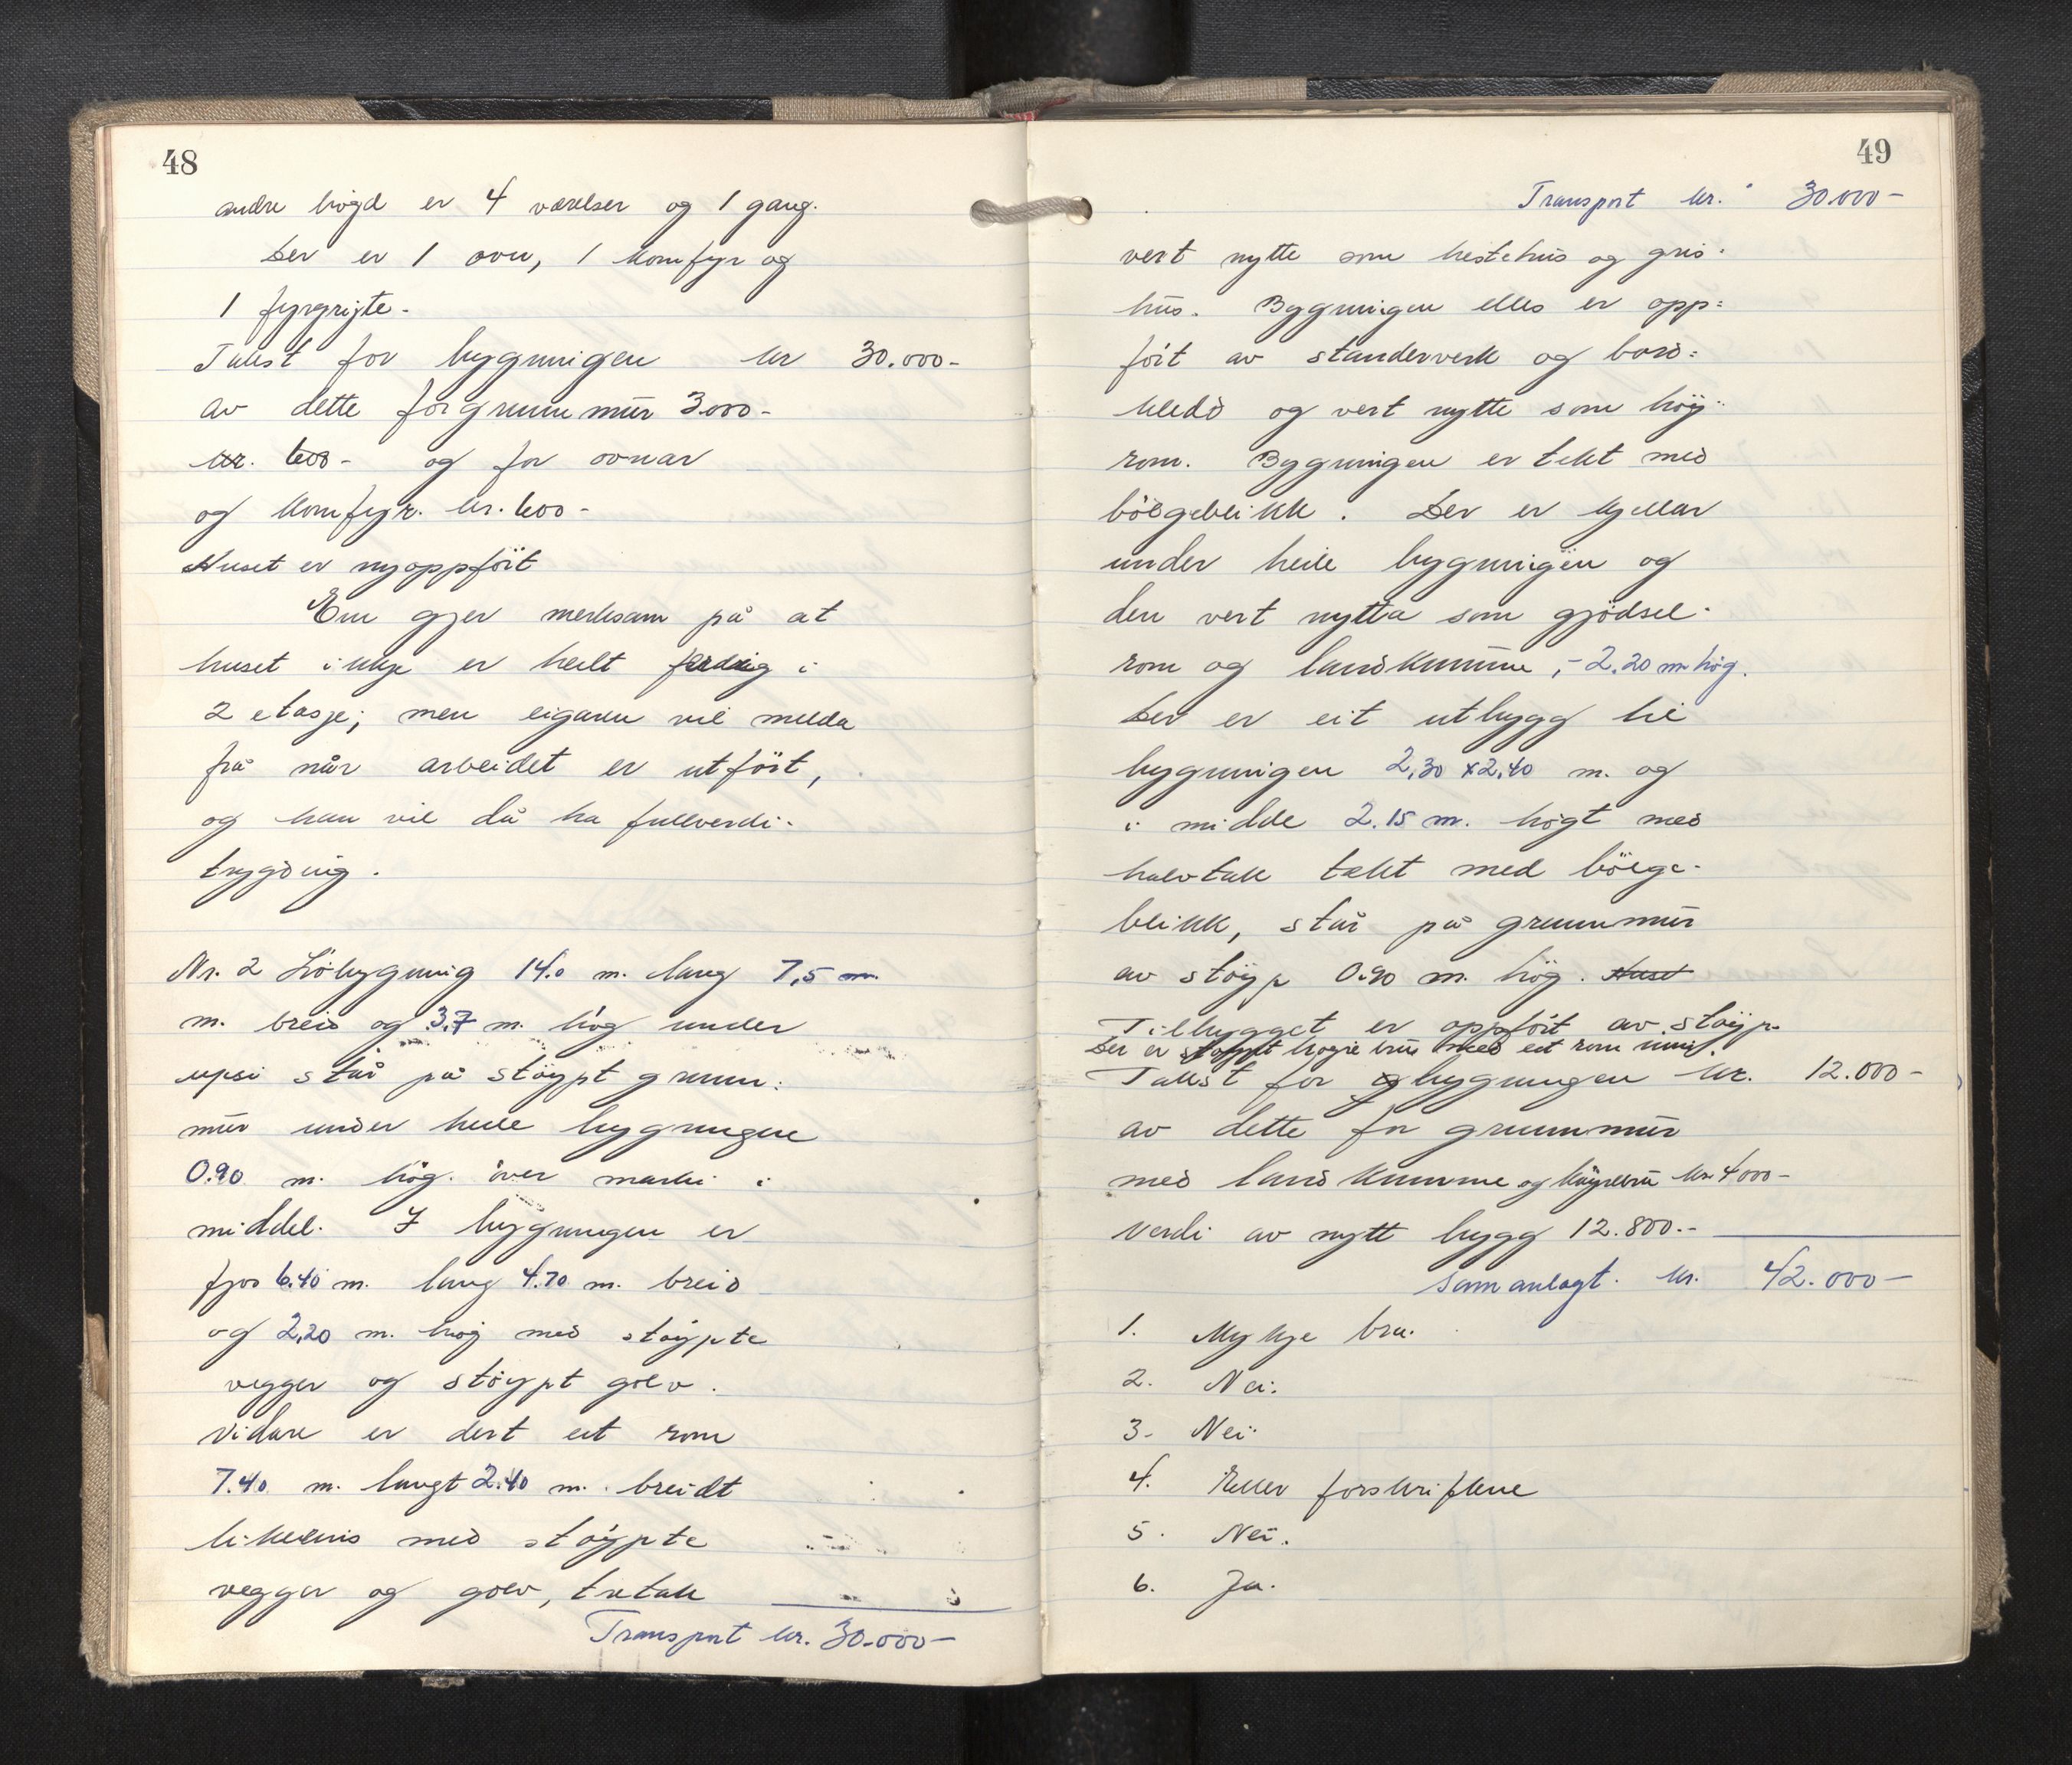 48
andre högd er 4 værelser og 1 gang.
Der er 1 ovn, 1 komfyr og
1 fyrgryte.
Takst for bygningen kr 30.000-
av dette for grunnmur 3000-
kr. 600- og for ovnar
og komfyr. kr. 600-
Huset er nyoppfört
Ein gjer merksam på at
huset ikkje er heilt ferdig i
2 etasje; men eigaren vil melda
frå når arbeidet er utfört,
og han vil då ha fullverdi-
trygding.
Nr. 2 Löbygning 14.0 m. lang 7,5 m.
m. breid og 3.7 m. hög under
upsi står på støypt grunn:
mur under heile bygningen
0.90 m. høg. över marki i
middel. I bygningen er
fjos 6.40 m. lang 4.70 m. breid
og 2,20 m. høg med støypte
vegger og støypt golv.
Vidare er dert eit rom
7.40 m. langt 2.40 m. breidt
likeeins med støypte
vegger og golv, tretak
Transport kr. 30.000-
49
Transport kr. 30.000-
vert nytte som hestehus og gris-
hus. Bygningen elles er opp:
fört av standerverk og bord:
kledd og vert nytte som höy-
rom. Bygningen er tekt med
bölgeblikk. Der er kjellar
under heile bygningen og
den vert nytta som gjödsel-
rom og landkumme, - 2.20 m hög.
Der er eit utbygg til
bygningen 2,30 x 2,40 m. og
i midde 2.15 m. högt med
halvtak tekt med bölge-
blikk, står på grunnmur
av støyp 0.90 m. hög. Huset
Tilbygget er oppfört av støyp.
Der er støypt høgie bru med eit rom inni.
Takst for bygningen kr. 12.000-
av dette for grunnmur
med land kumme og köyrebru kr 4000-
Verdi av nytt bygg 12.800.-
Samanlagt. kr. 42.000-
1. Mykje bra.
2. Nei.
3. Nei.
4. Etter forskriftene
5. Nei.
6. Ja.